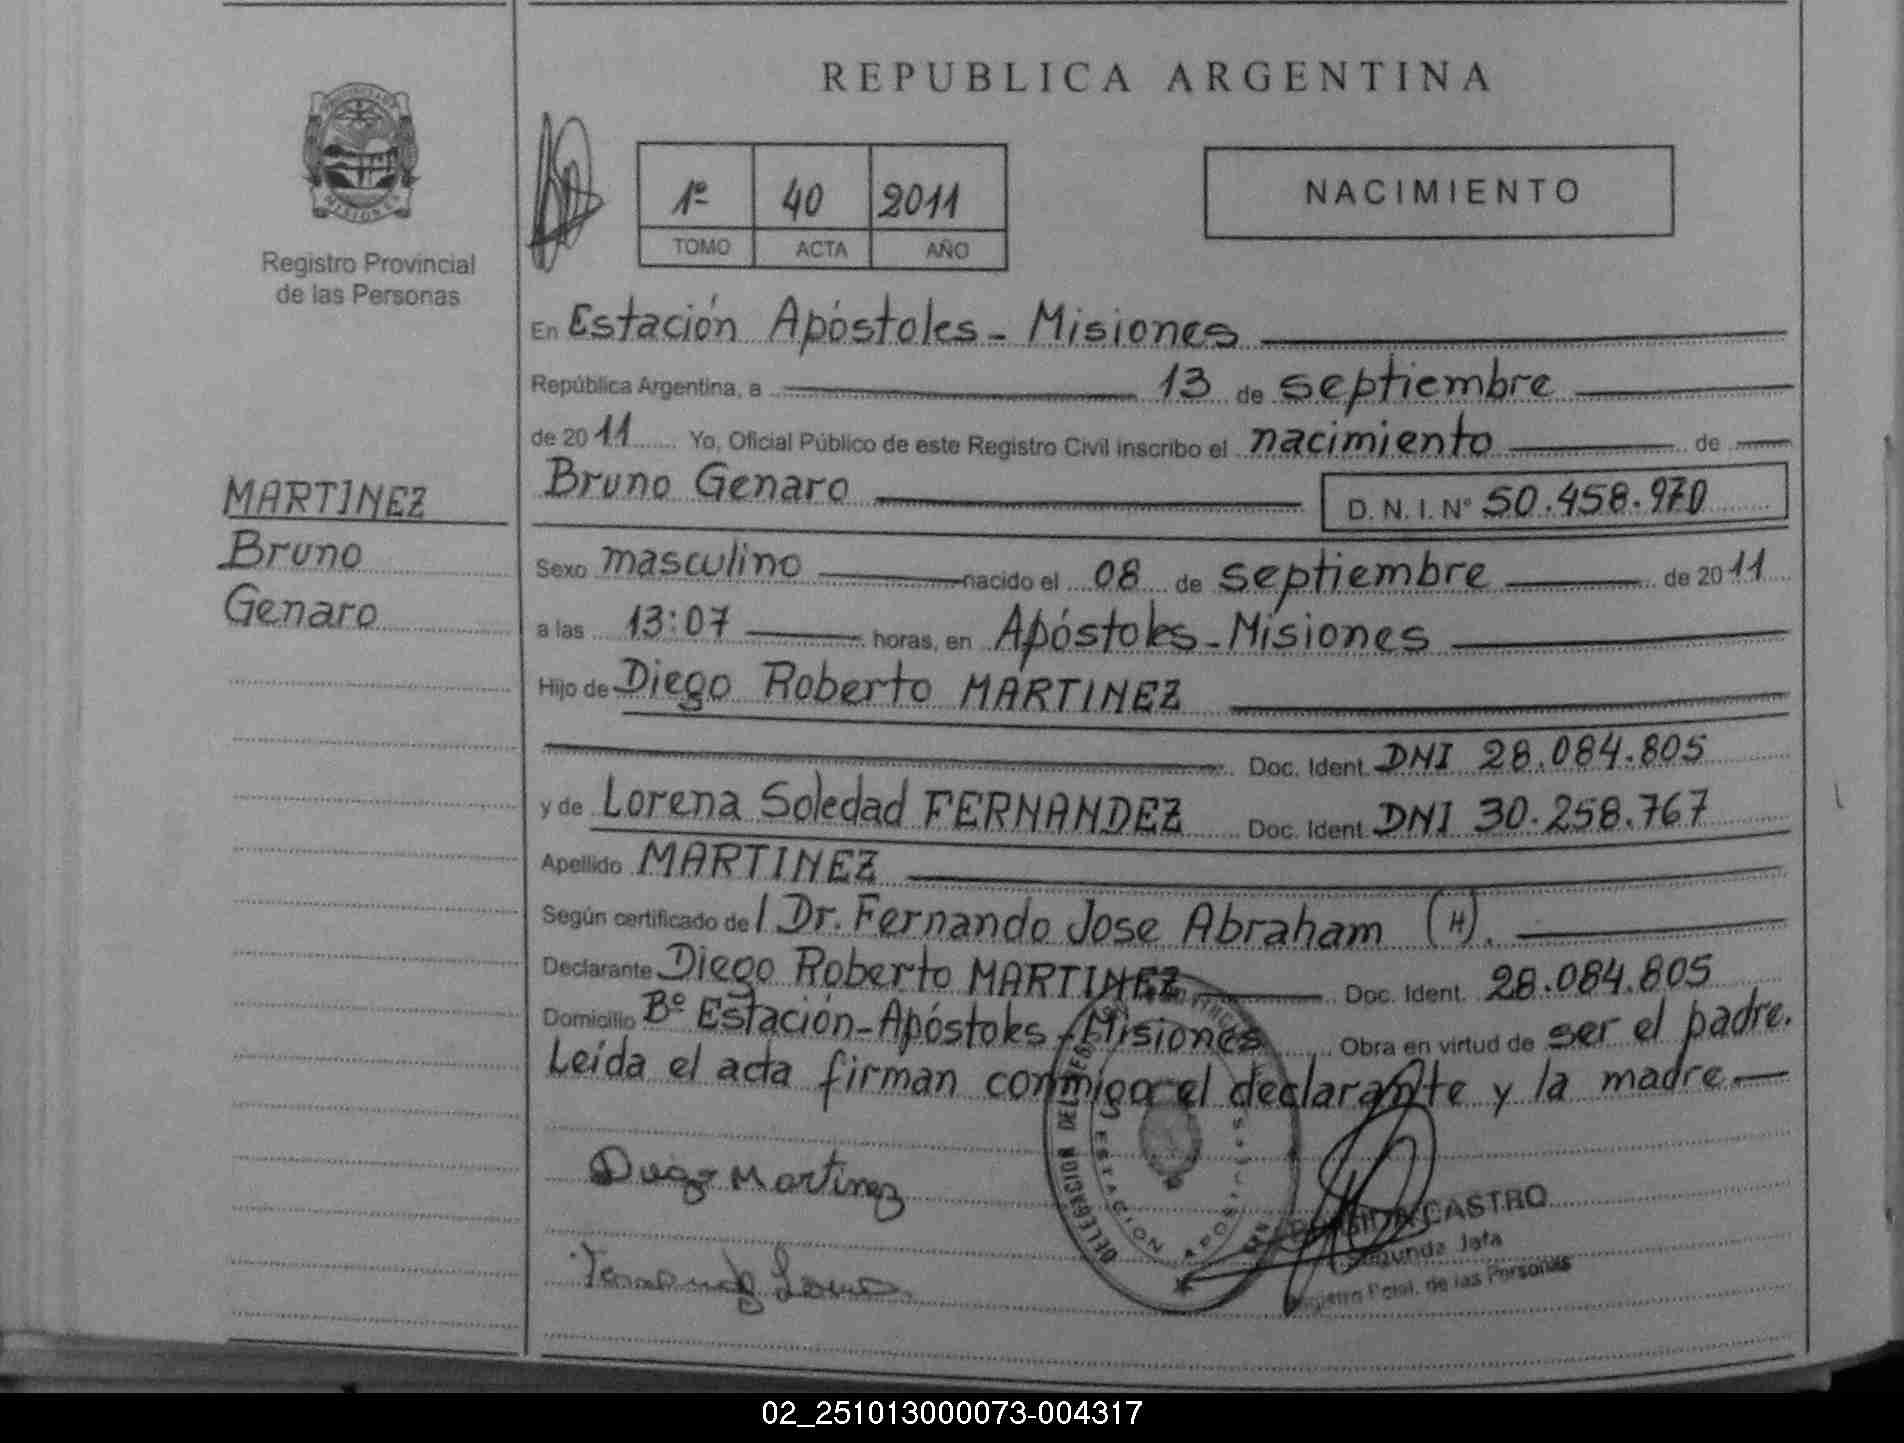 REPUBLICA ARGENTINA
PROVINCIA DE
MISIONES
Registro Provincial
de las Personas
1º 40 2011
TOMO ACTA AÑO
NACIMIENTO
En Estación Apóstoles - Misiones
República Argentina, a 13 de septiembre
de 2011 Yo, Oficial Público de este Registro Civil inscribo el nacimiento de
Bruno Genaro D. N. I. Nº 50.458.970
MARTINEZ
Bruno
Genaro
Sexo masculino nacido el 08 de septiembre de 2011
a las 13:07 horas, en Apóstoles - Misiones
Hijo de Diego Roberto MARTINEZ
Doc. Ident. DNI 28.084.805
y de Lorena Soledad FERNANDEZ Doc. Ident. DNI 30.258.767
Apellido MARTINEZ
Según certificado de / Dr. Fernando Jose Abraham (H).
Declarante Diego Roberto MARTINEZ Doc. Ident. 28.084.805
Domicilio Bº Estación - Apóstoles - Misiones Obra en virtud de ser el padre.
Leída el acta firman conmigo el declarante y la madre.
Diego Martinez
DELEGACION DEL
ESTACION APOSTOLES
CASTRO
Segunda Jefa
Registro Pcial. de las Personas
02_251013000073-004317